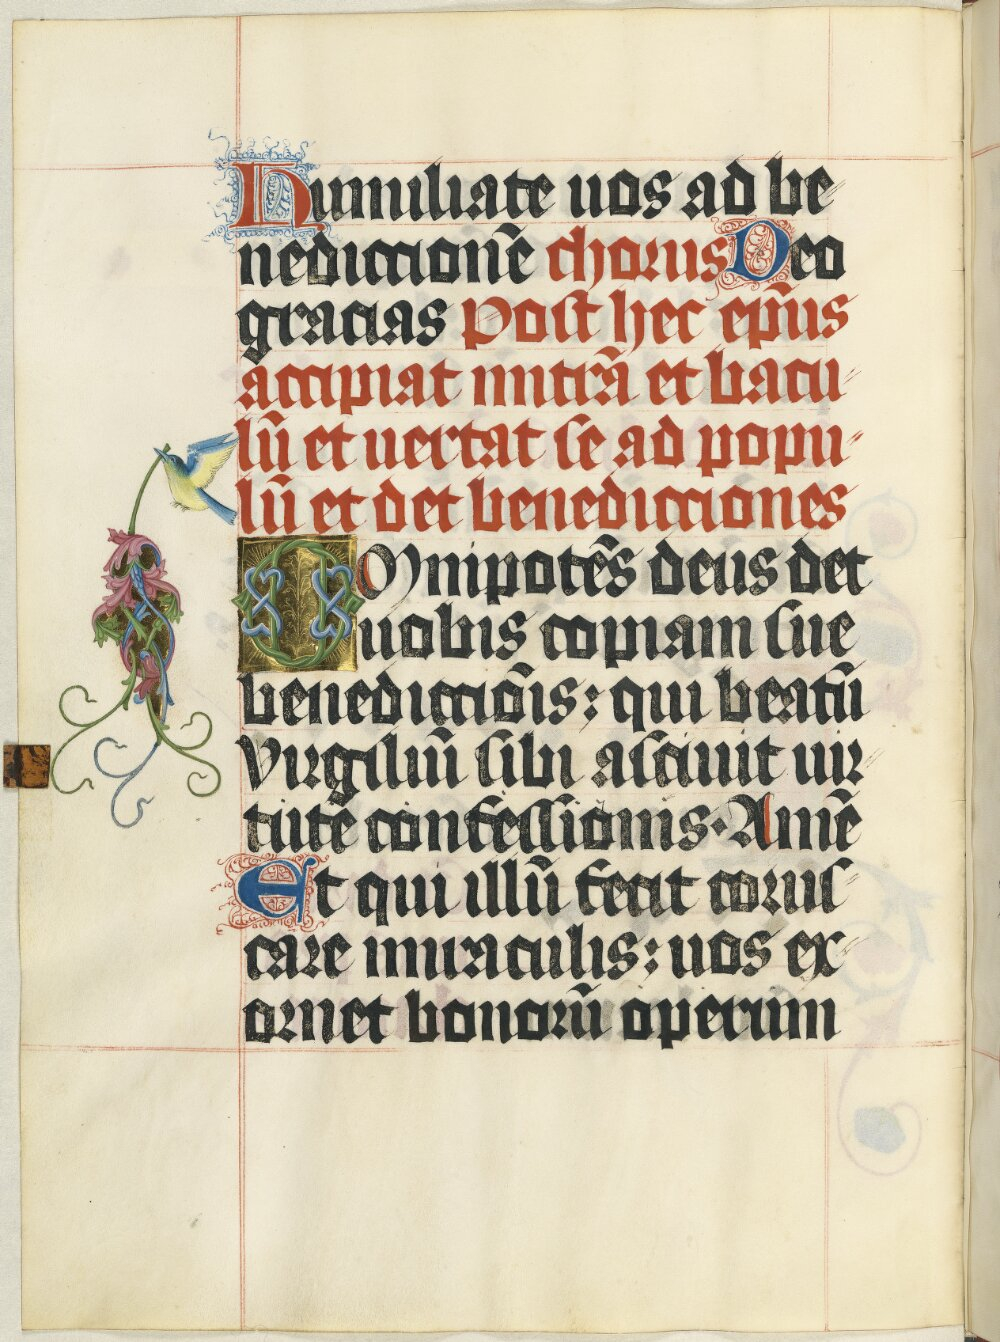 Humiliate uos ad be
nediccionē chorus Deo
gracias Post hec ep̄us
accipiat mitrā et bacu
lū et uertat se ad popu
lū et det benedicciones
Omnipotēs deus det
uobis copiam sue
benediccōis: qui beatū
Virgiliū sibi asciuit uir
tute confessionis. Amē
Et qui illū fecit corus
care miraculis: uos ex
ornet bonorū operum